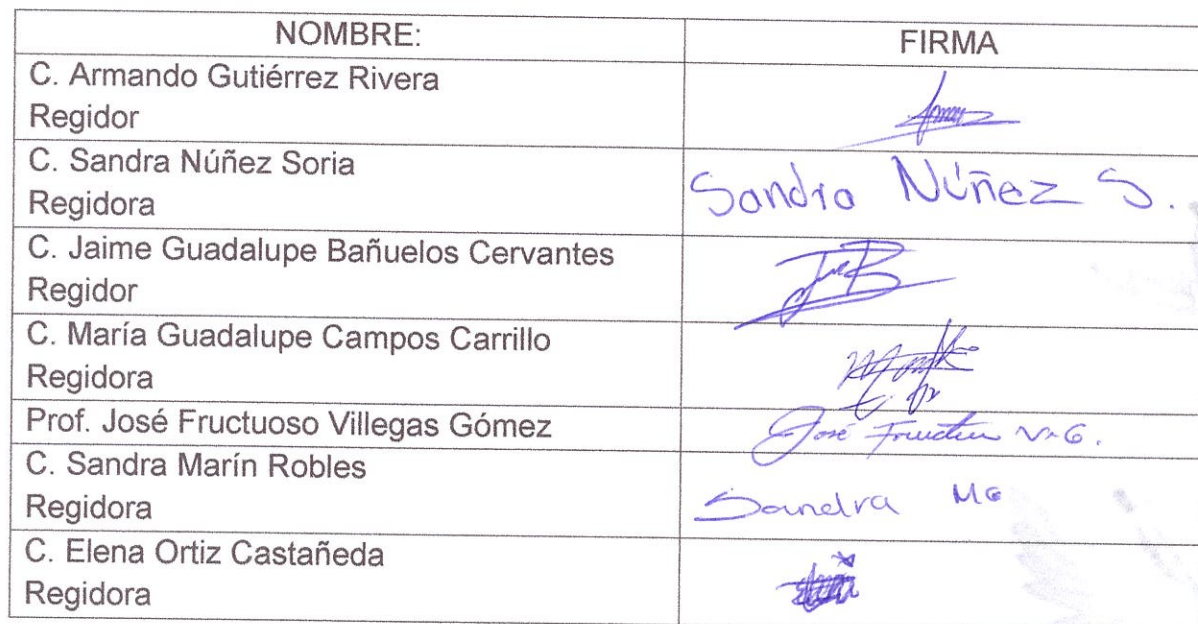 NOMBRE: FIRMA
C. Armando Gutiérrez Rivera
Regidor
C. Sandra Núñez Soria
Regidora
Sandra Núñez S.
C. Jaime Guadalupe Bañuelos Cervantes
Regidor
C. María Guadalupe Campos Carrillo
Regidora
Prof. José Fructuoso Villegas Gómez
José V. G.
C. Sandra Marín Robles
Regidora
Sandra
C. Elena Ortiz Castañeda
Regidora